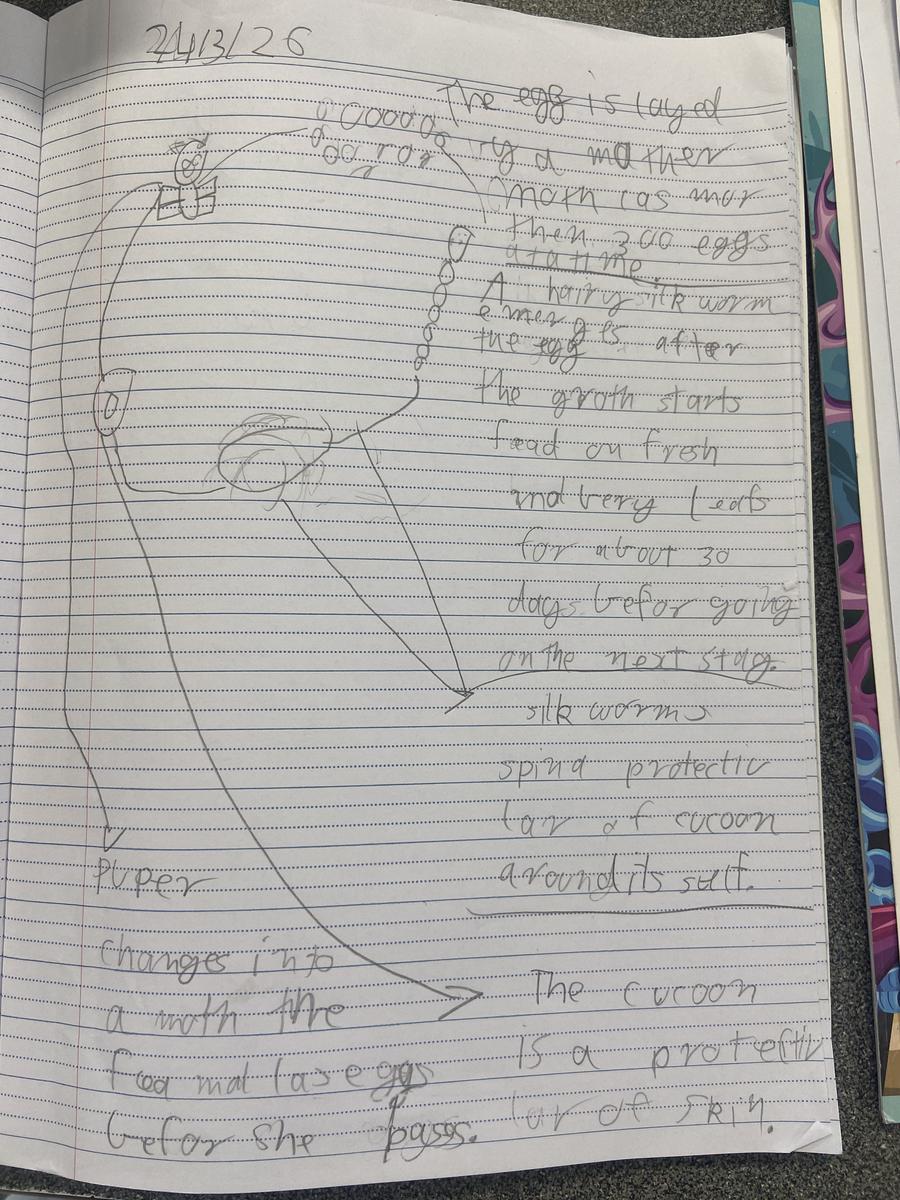 24/3/26
The egg is layed
by a mather
moth las mor
then 300 eggs
at a time.
A hairy silk worm
emerges after
the egg
the groth starts
fead on fresh
and bery leafs
for about 30
days befor going
on the next stag.
silk worms
spind protectic
lar of cucoon
around its self.
The cucoon
is a protectiv
lar of skin.
puper
changes into
a moth the
feamal las eggs
befor she passs.